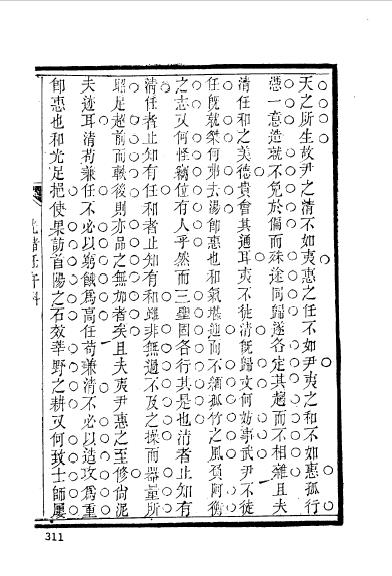 天之所生故尹之清不如夷惠之任不如尹夷之和不如惠孤行
憑一意造就不免於偏而殊途同歸遂各定其趨而不相襍且夫
清任和之美德貴會其通耳夷不徒清旣歸文何妨事武尹不徒
任旣就桀何弗去湯卽惠也和氣堪迎而不類孤竹之風須阿衡
之志又何怪竊位有人乎然而三聖固各行其是也清者止知有
清任者止知有任和者止知有和雖非無過不及之操而器量所
昭足超前而軼後則亦品之無加者矣且夫夷尹惠之至修尙泥
夫迹耳清苟兼任不必以窮餓爲高任苟兼清不必以造攻爲重
卽惠也和光足挹使果訪首陽之石效莘野之耕又何致士師屢
光緒壬午科
311